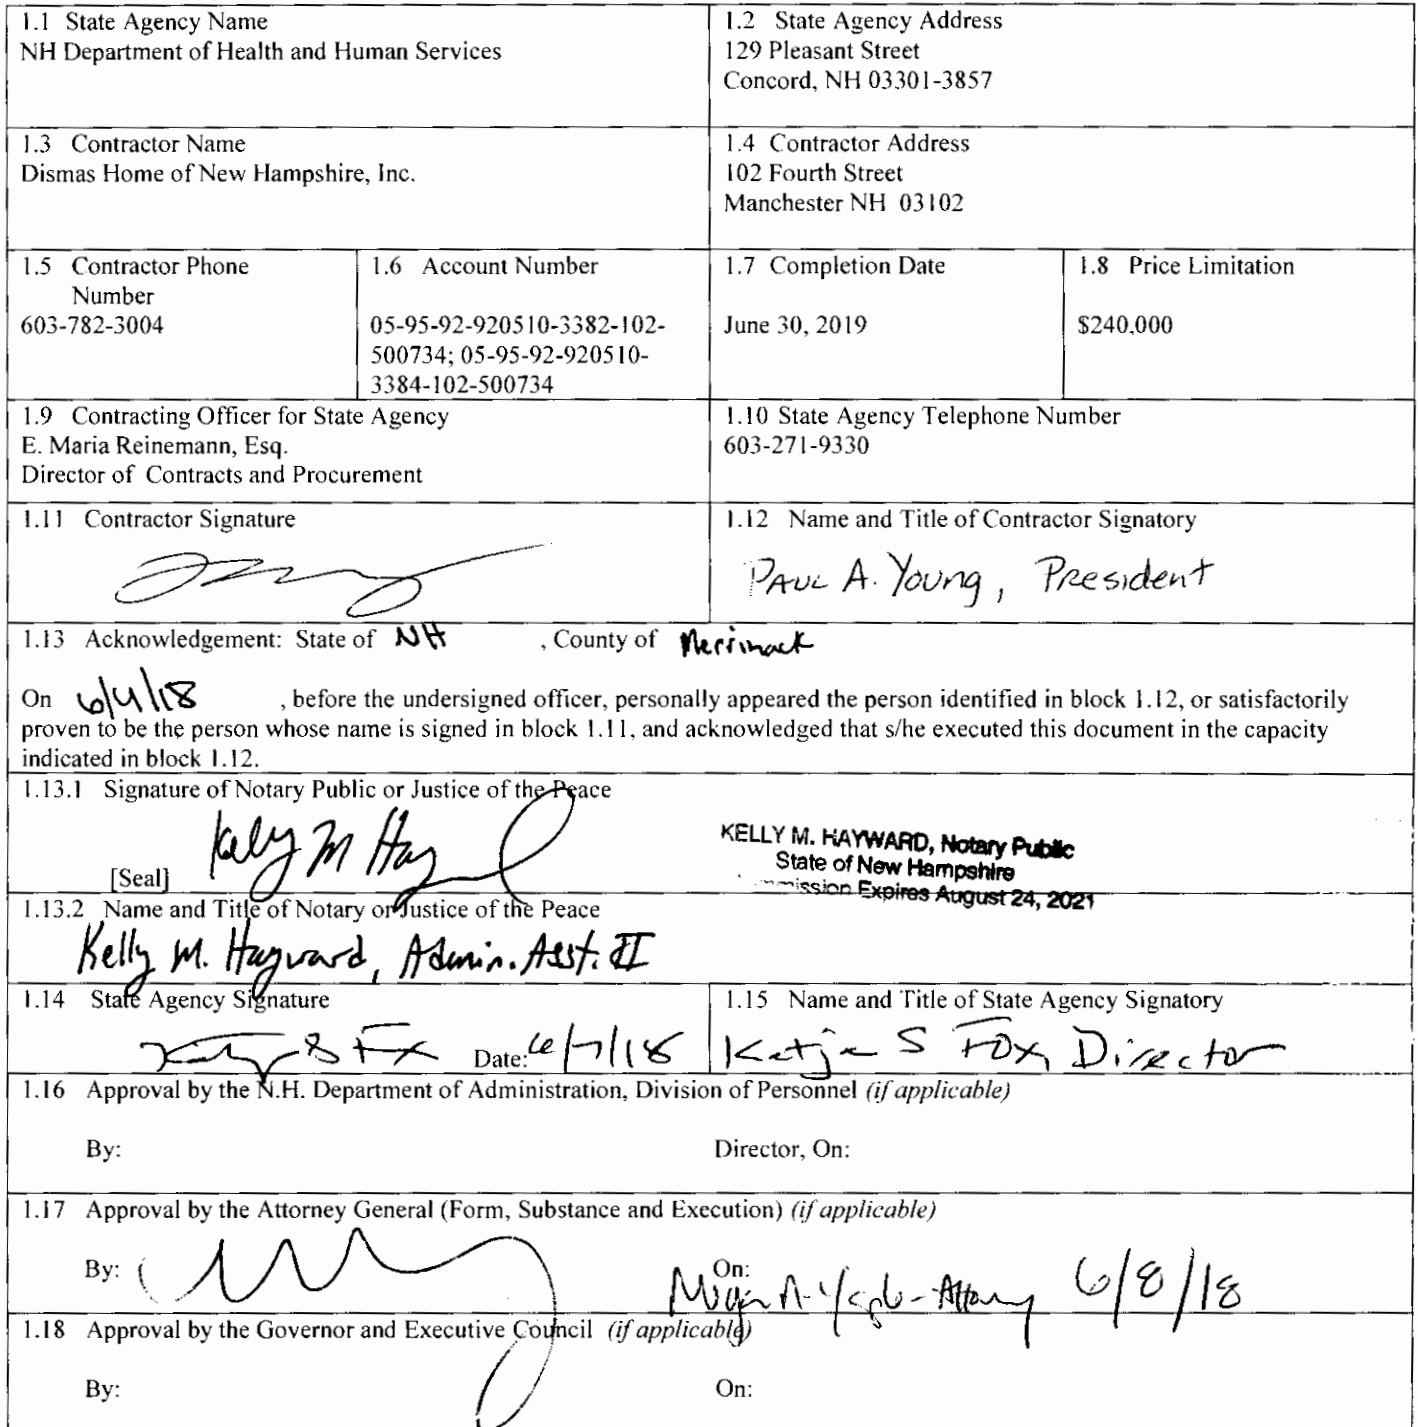 1.1 State Agency Name
NH Department of Health and Human Services
1.2 State Agency Address
129 Pleasant Street
Concord, NH 03301-3857
1.3 Contractor Name
Dismas Home of New Hampshire, Inc.
1.4 Contractor Address
102 Fourth Street
Manchester NH 03102
1.5 Contractor Phone
Number
603-782-3004
1.6 Account Number
05-95-92-920510-3382-102-
500734; 05-95-92-920510-
3384-102-500734
1.7 Completion Date
June 30, 2019
1.8 Price Limitation
$240,000
1.9 Contracting Officer for State Agency
E. Maria Reinemann, Esq.
Director of Contracts and Procurement
1.10 State Agency Telephone Number
603-271-9330
1.11 Contractor Signature
1.12 Name and Title of Contractor Signatory
Paul A. Young, President
1.13 Acknowledgement: State of NH , County of Merrimack
On 6/4/18 , before the undersigned officer, personally appeared the person identified in block 1.12, or satisfactorily
proven to be the person whose name is signed in block 1.11, and acknowledged that s/he executed this document in the capacity
indicated in block 1.12.
1.13.1 Signature of Notary Public or Justice of the Peace
Kelly M Hay
[Seal]
KELLY M. HAYWARD, Notary Public
State of New Hampshire
mission Expires August 24, 2021
1.13.2 Name and Title of Notary or Justice of the Peace
Kelly M. Hayward, Admin. Asst. II
1.14 State Agency Signature
S Fox Date: 6/7/18
1.15 Name and Title of State Agency Signatory
Katja S Fox, Director
1.16 Approval by the N.H. Department of Administration, Division of Personnel (if applicable)
By: Director, On:
1.17 Approval by the Attorney General (Form, Substance and Execution) (if applicable)
By: On: A. - Attorney 6/8/18
1.18 Approval by the Governor and Executive Council (if applicable)
By: On: